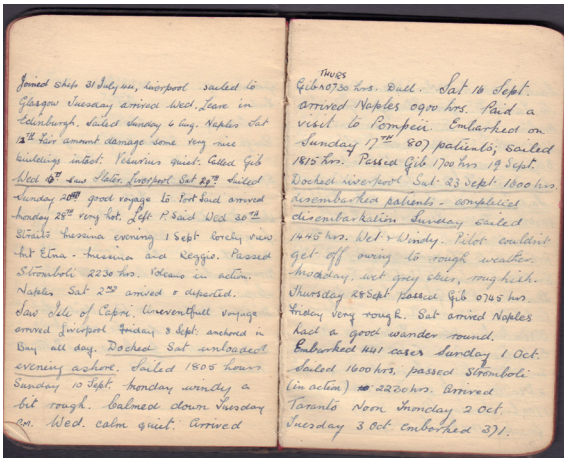 Joined ship 31 July 44, Liverpool sailed to
Glasgow Tuesday arrived Wed. Leave in
Edinburgh. Sailed Sunday 6 Aug. Naples Sat
12TH Fair amount damage some very nice
buildings intact. Vesuvius quiet. Called Gib
Wed 16th saw Slater. Liverpool Sat Sailed
Sunday 20th good voyage to Port Said arrived
Monday 28th very hot. Left P. Said Wed 30TH
Straits Messina evening 1 Sept lovely view
Mt Etna - Messina and Reggio. Passed
Stromboli 2230 hrs. Volcano in action.
Naples Sat 2nd arrived & departed.
Saw Isle of Capri. Uneventfull voyage
arrived Liverpool Friday 8 Sept. anchored in
Bay all day. Docked Sat unloaded
evening ashore. Sailed 1805 hours
Sunday 10 Sept. Monday windy a
bit rough. Calmed down Tuesday
p.m. Wed. calm quiet. Arrived
THURS
Gib 0730 hrs. Dull. Sat 16 Sept.
arrived Naples 0900 hrs. Paid a
visit to Pompeii. Embarked on
Sunday 17TH 807 patients; sailed
1815 hrs. Passed Gib 1700 hrs 19 Sept.
Docked Liverpool Sat. 23 Sept 1300 hrs.
disembarked patients - completed
disembarkation Sunday sailed
1445 hrs. Wet & Windy. Pilot couldn't
get off owing to rough weather.
Monday, wet grey skies, roughish.
Thursday 28 Sept passed Gib 0745 hrs.
Friday very rough. Sat arrived Naples
had a good wander round.
Embarked 441 cases Sunday 1 Oct.
Sailed 1600 hrs. passed Stromboli
(in action) 2230 hrs. Arrived
Taranto Noon Monday 2 Oct.
Tuesday 3 Oct. embarked 371.